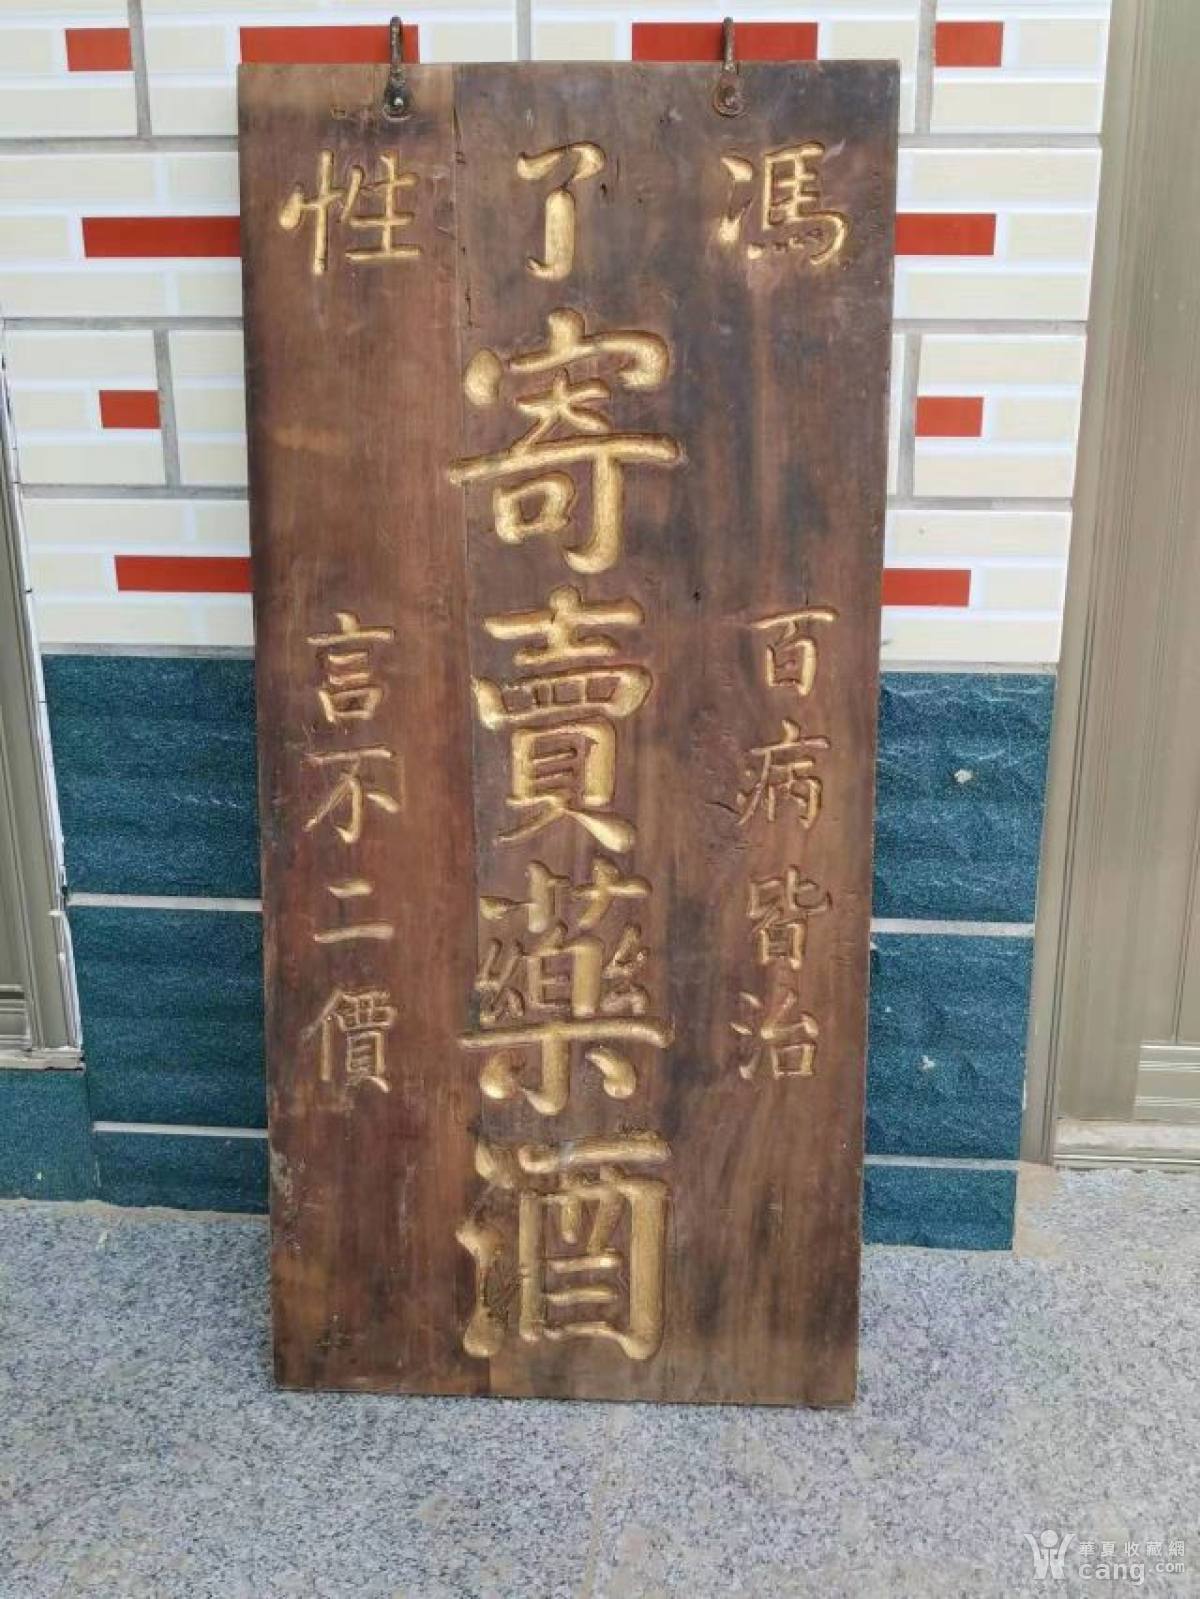 馮了性
百病皆治
寄賣藥酒
言不二價
華夏收藏網
cang.com